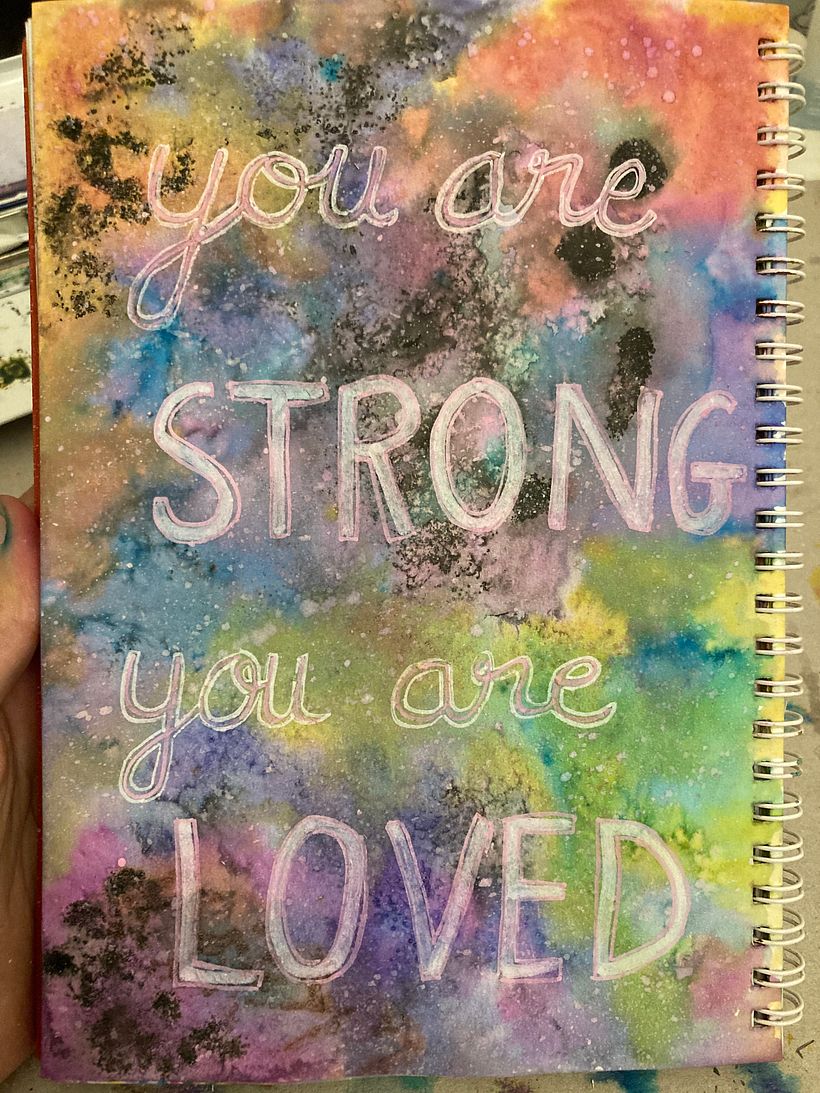 you are
STRONG
you are
LOVED